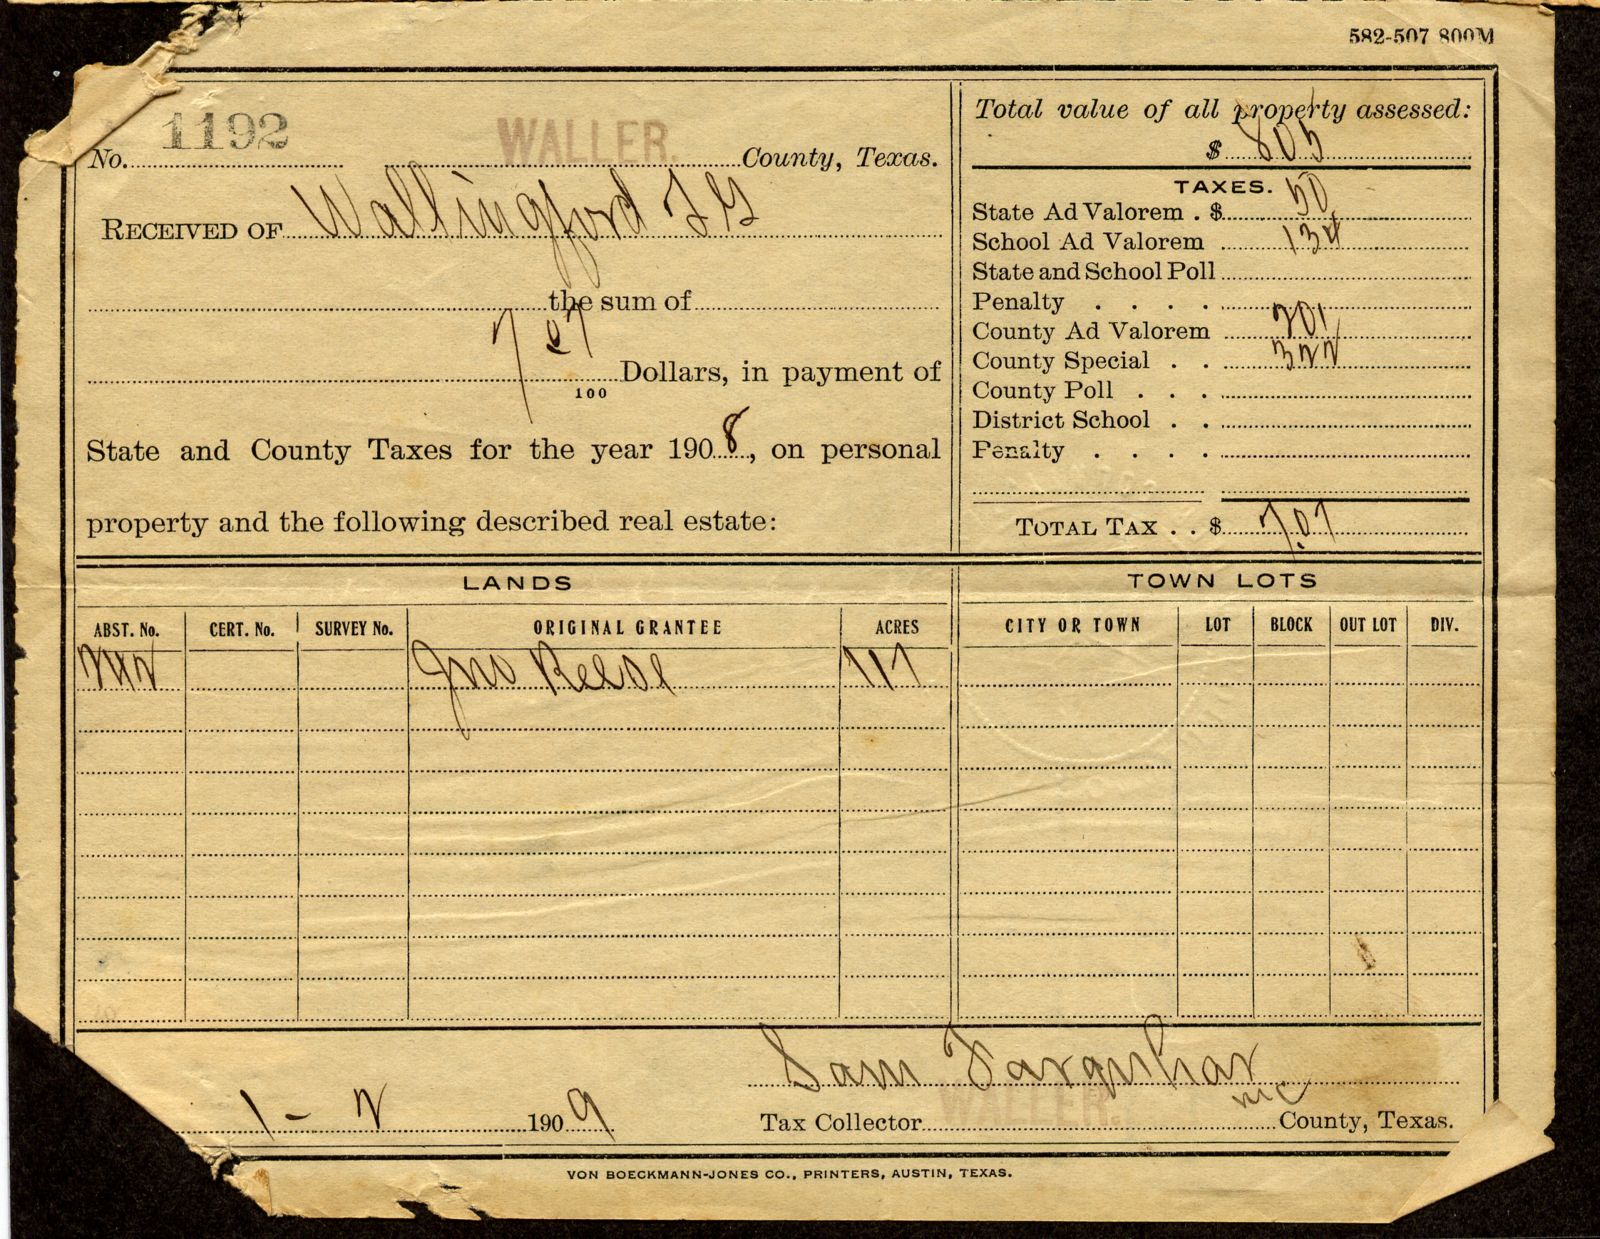 582-507 800M
No. 1192 WALLER. County, Texas.
RECEIVED OF Wallingford F G
the sum of
7 07/100 Dollars, in payment of
State and County Taxes for the year 1908, on personal
property and the following described real estate:
Total value of all property assessed:
$ 805
TAXES.
State Ad Valorem . $ 50
School Ad Valorem 134
State and School Poll
Penalty . . . .
County Ad Valorem 201
County Special . . 322
County Poll . . .
District School . .
Penalty . . . .
TOTAL TAX . . $ 7.07
LANDS
ABST. No. CERT. No. SURVEY No. ORIGINAL GRANTEE ACRES
242 Jno Reese 117
TOWN LOTS
CITY OR TOWN LOT BLOCK OUT LOT DIV.
Sam Farquhar
1 - 2 1909 Tax Collector WALLER. County, Texas.
VON BOECKMANN-JONES CO., PRINTERS, AUSTIN, TEXAS.